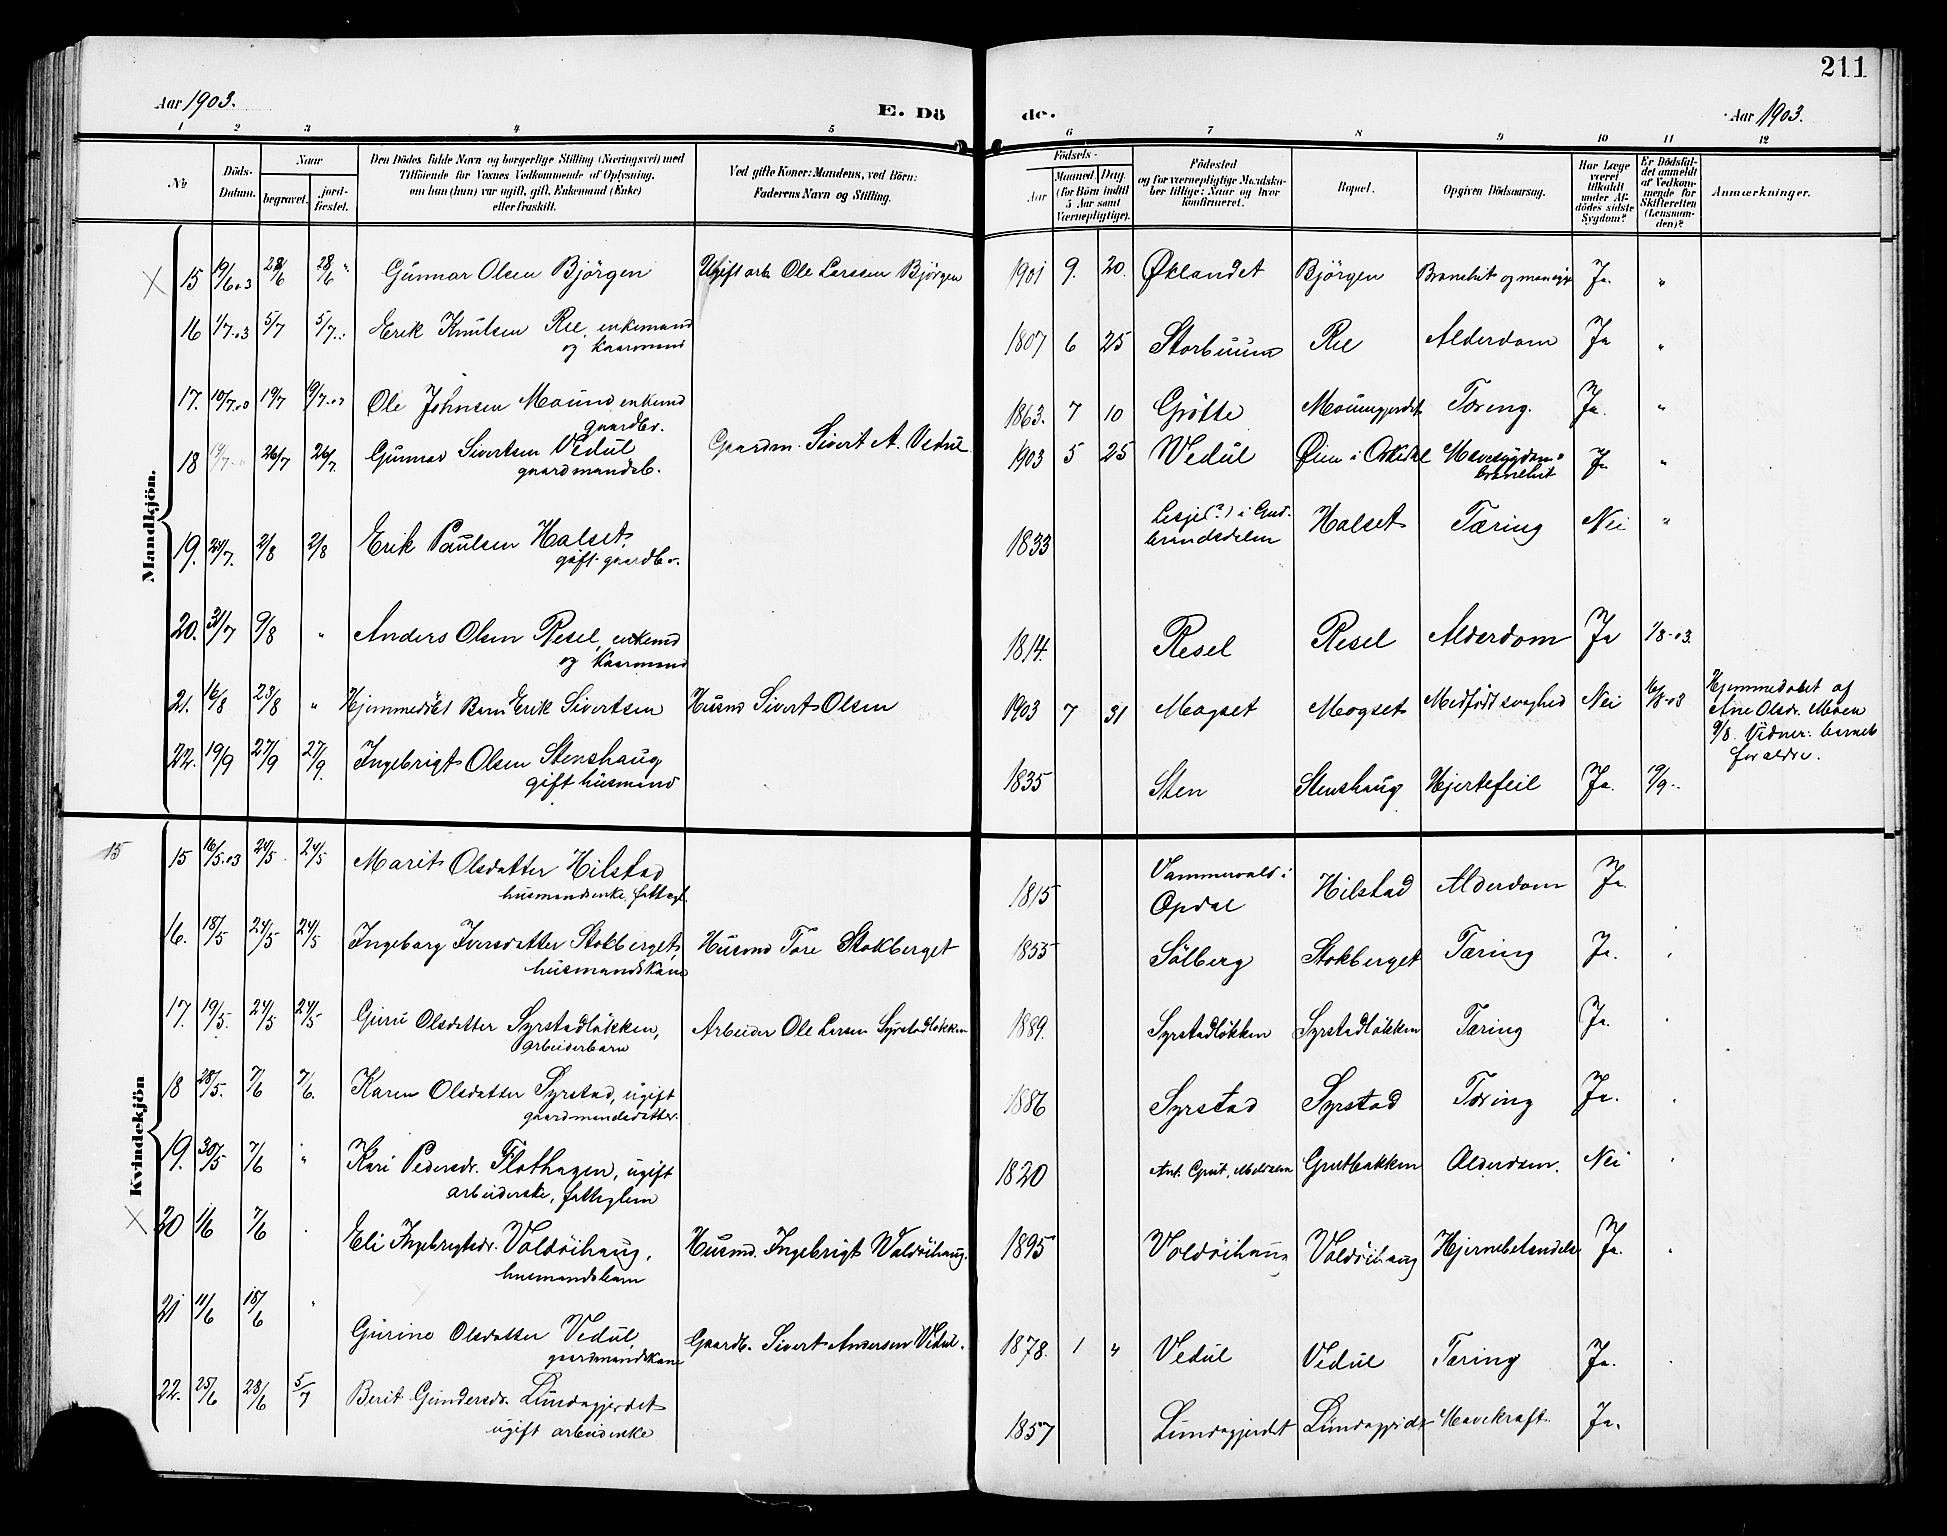 211
Aar 1903.
E. Dö
de.
Aar 1903.
1 2 3 4 5 6 7 8 9 10 11 12
No
Döds-
Datum.
Naar
begravet.
jord-
fæstet.
Den Dödes fulde Navn og borgerlige Stilling (Næringsvei) med
Tilföiende for Voxnes Vedkommende af Oplysning,
om han (hun) var ugift, gift, Enkemand (Enke)
eller fraskilt.
Ved gifte Koner: Mandens, ved Börn:
Faderens Navn og Stilling.
Födsels-
Aar
Maaned. Dag.
(for Börn indtil
5 Aar samt
Værnepligtige).
Födested
og for værnepligtige Mandska-
ber tillige: Naar og hvor
konfirmeret.
Bopæl.
Opgiven Dödsaarsag.
Har Læge
været
tilkaldt
under Af-
dödes sidste
Sygdom?
Er Dödsfal-
det anmeldt
af Vedkom-
mende for
Skifteretten
(Lensman-
den)?
Anmærkninger.
Mandkjön.
15 19/6 03 28/6 28/6 " Gunnar Olsen Bjørgen Ugift arb. Ole Larssen Bjørgen 1901 9. 20. Øklandet Bjørgen Ja. "
16 1/7 03 5/7 5/7 Erik Knutsen Ree, enkemand 1807 6 25 Ree Alderdom Ja "
og kaarmand
17. 19/7 Ole Johnsen enkemd 1863. 7 10 Grötte Tæring. Ja. "
gaardbr.
18 26/7 26/7 Gunnar Sivertsen Vedul Gaardm. Sivert A. Vedul 1903 5 25 Vedul Ja "
gaardmandsb.
19. 2/8 2/8 Erik Paulsen Halset, 1833 Lesje(?) i Gud- Halset Tæring Nei "
gift gaardbr. brandsdalen
20. 31/7 9/8 " Anders Olsen Resel, enkemd 1814. Resel Resel Alderdom Ja 1/8-03.
og kaarmand
21. 16/8 23/8 " Hjemmedöbt Barn Erik Sivertsen Husmd Sivert Olsen 1903 7 31 Mogset Mogset Medfödt svaghed Nei 16/8-03 Hjemmedöbt af
Ane Olsdr. Moen
9/8. Vidner: barnets
forældre.
22. 19/9 27/9 27/9. Ingebrigt Olsen Stenshaug 1835 Sten Stenshaug Hjertefeil Ja. 19/9
gift husmand
Kvindekjön
15
15 16/5 03 24/5 24/5 Marit Olsdatter Hilstad 1815 Hilstad Alderdom Ja.
husmandsenke, fattigl. Opdal
16. 18/5 24/5 24/5 Ingeborg Iversdatter Stokberget, Husmd Tore Stokberget 1855 Sölberg Stokberget Tæring Ja.
husmandskone
17. 19/5. 24/5 24/5 Guru Olsdatter Syrstadløkken, Arbeider Ole Larsen Syrstadløkken 1889. Syrstadløkken Syrstadløkken Tæring Ja.
arbeiderbarn
18 28/5. 7/6 7/6. Karen Olsdatter Syrstad, ugift 1886 Syrstad Syrstad Tæring Ja.
gaardmandsdatter.
19. 30/5 7/6 " Kari Pedersdr. Flothagen, ugift 1820 Grutbakken Alderdom. Nei
arbeiderske, fattiglem
20 1/6 7/6 Eli Ingebrigtsdr. Voldöihaug, Husmd. Ingebrigt Voldöihaug. 1895 Voldöihaug Voldöihaug Ja.
husmandsbarn
21 11/6 18/6 " Gurine Olsdatter Vedul, Gaardb. Sivert Andersen Vedul. 1878. 1 4 Vedul Vedul Tæring Ja.
gaardmandskone
22. 25/6 28/6 5/7 Berit Gundersdr. Lundagjerdet 1857 Lundagjerdet Lundagjerdet Mavekræft. Ja.
ugift